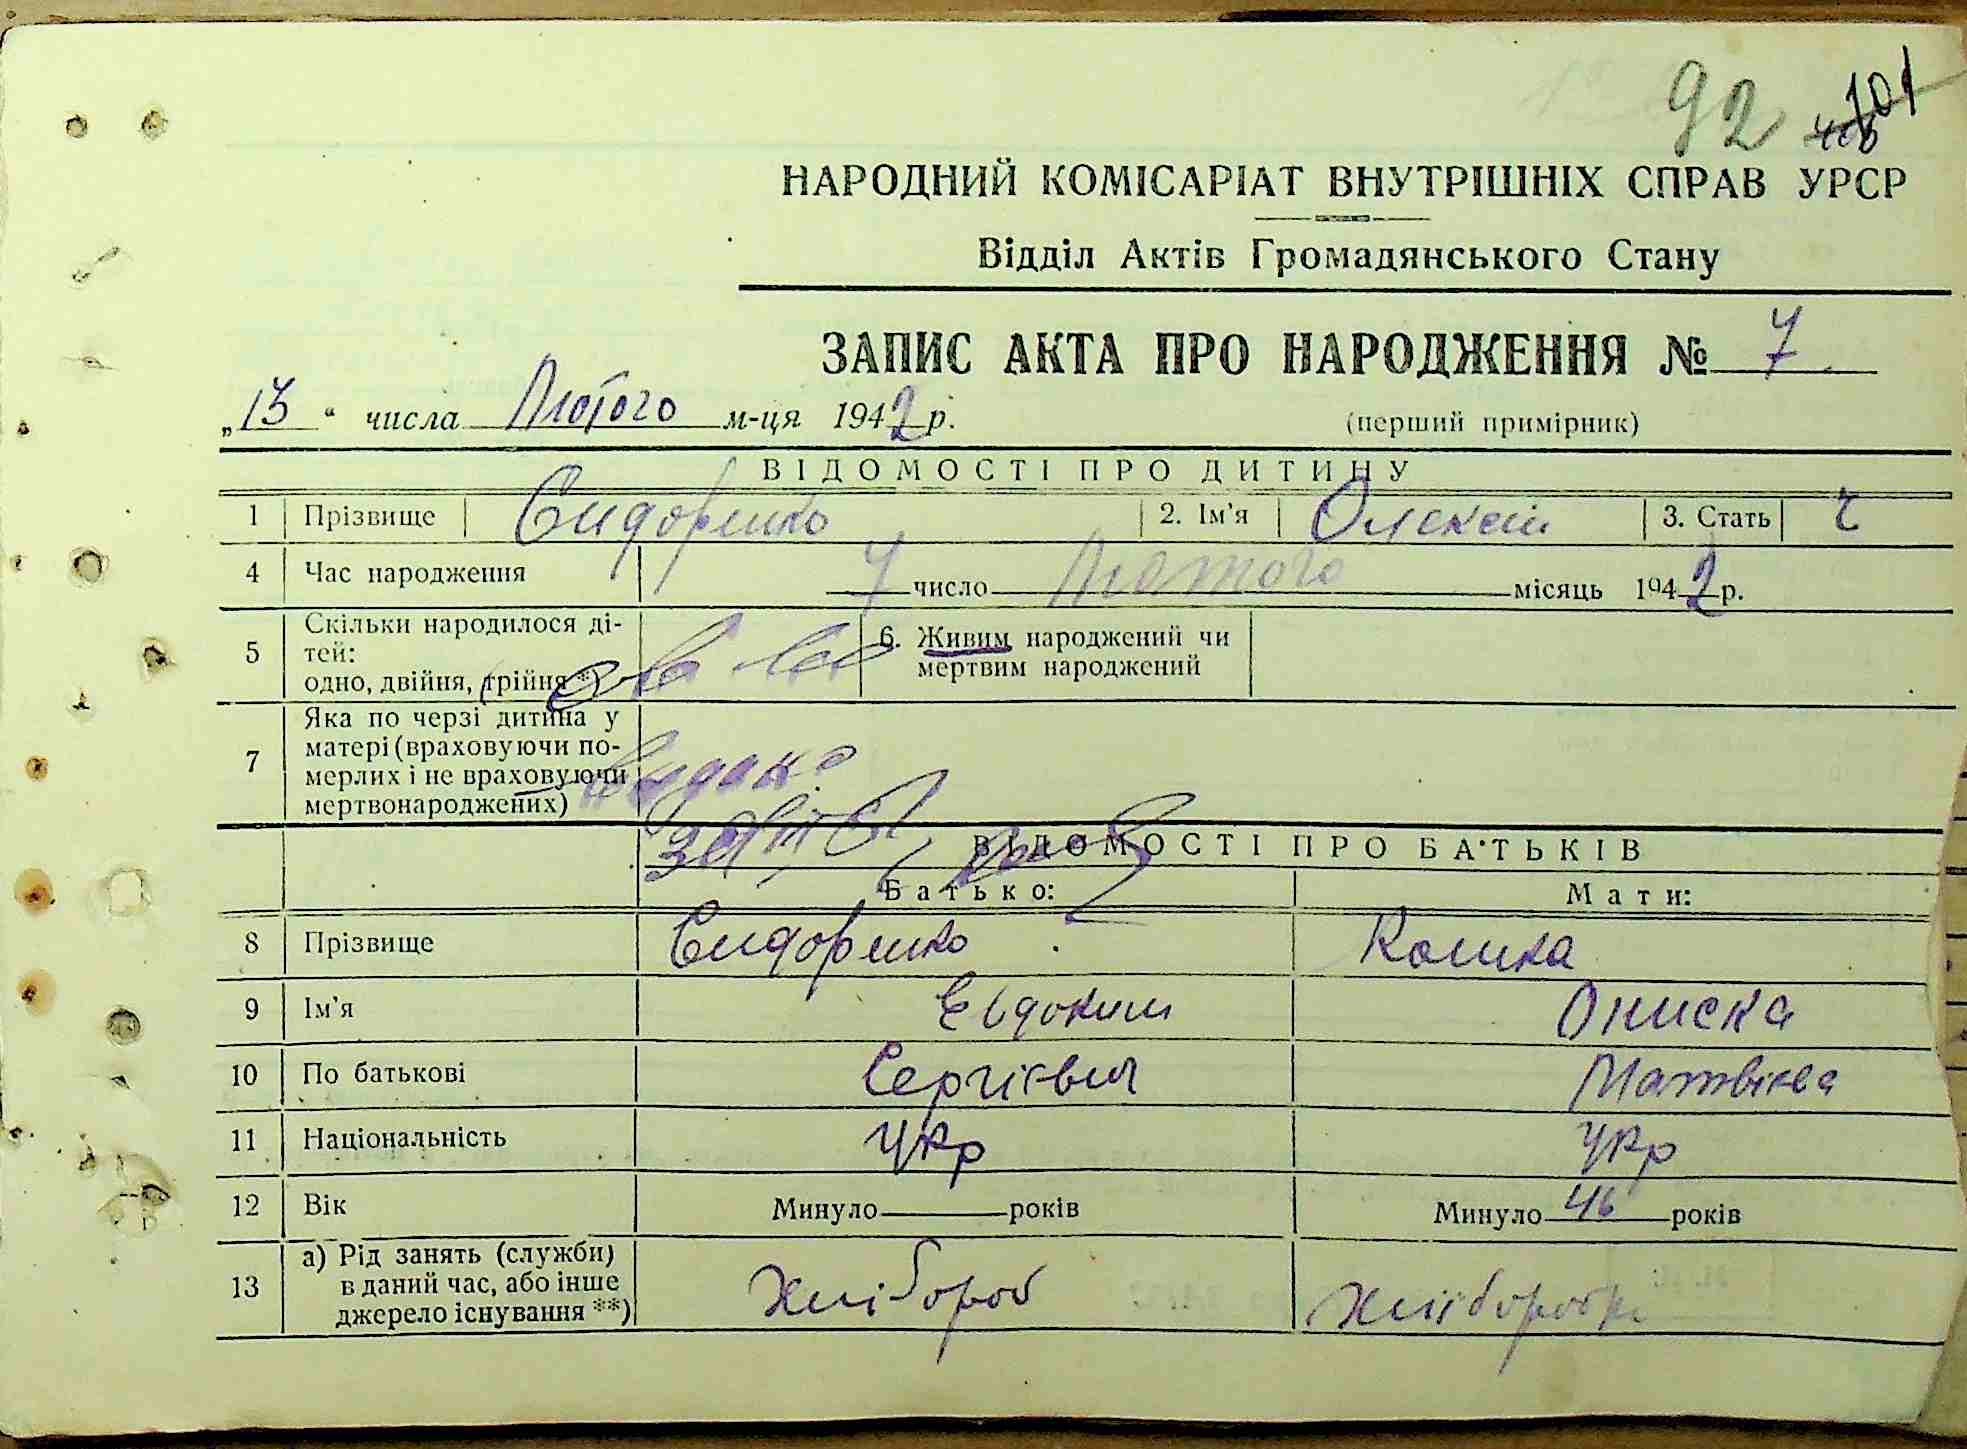 92 101
НАРОДНИЙ КОМІСАРІАТ ВНУТРІШНІХ СПРАВ УРСР
Відділ Актів Громадянського Стану
ЗАПИС АКТА ПРО НАРОДЖЕННЯ № 7
„13“ числа Лютого м-ця 1942 р. (перший примірник)
ВІДОМОСТІ ПРО ДИТИНУ
1 Прізвище Сидоренко 2. Ім'я Олексій 3. Стать ч
4 Час народження 7 число Лютого місяць 1942 р.
5 Скільки народилося ді-
тей:
одно, двійня, трійня *)
6. Живим народжений чи
мертвим народжений
7 Яка по черзі дитина у
матері (враховуючи по-
мерлих і не враховуючи
мертвонароджених)
ВІДОМОСТІ ПРО БАТЬКІВ
Батько: Мати:
8 Прізвище Сидоренко
9 Ім'я Евдоким Ониска
10 По батькові Сергієвич Матвієва
11 Національність Укр Укр
12 Вік Минуло років Минуло 46 років
13 а) Рід занять (служби)
в даний час, або інше
джерело існування **)
Хлібороб Хліборобка